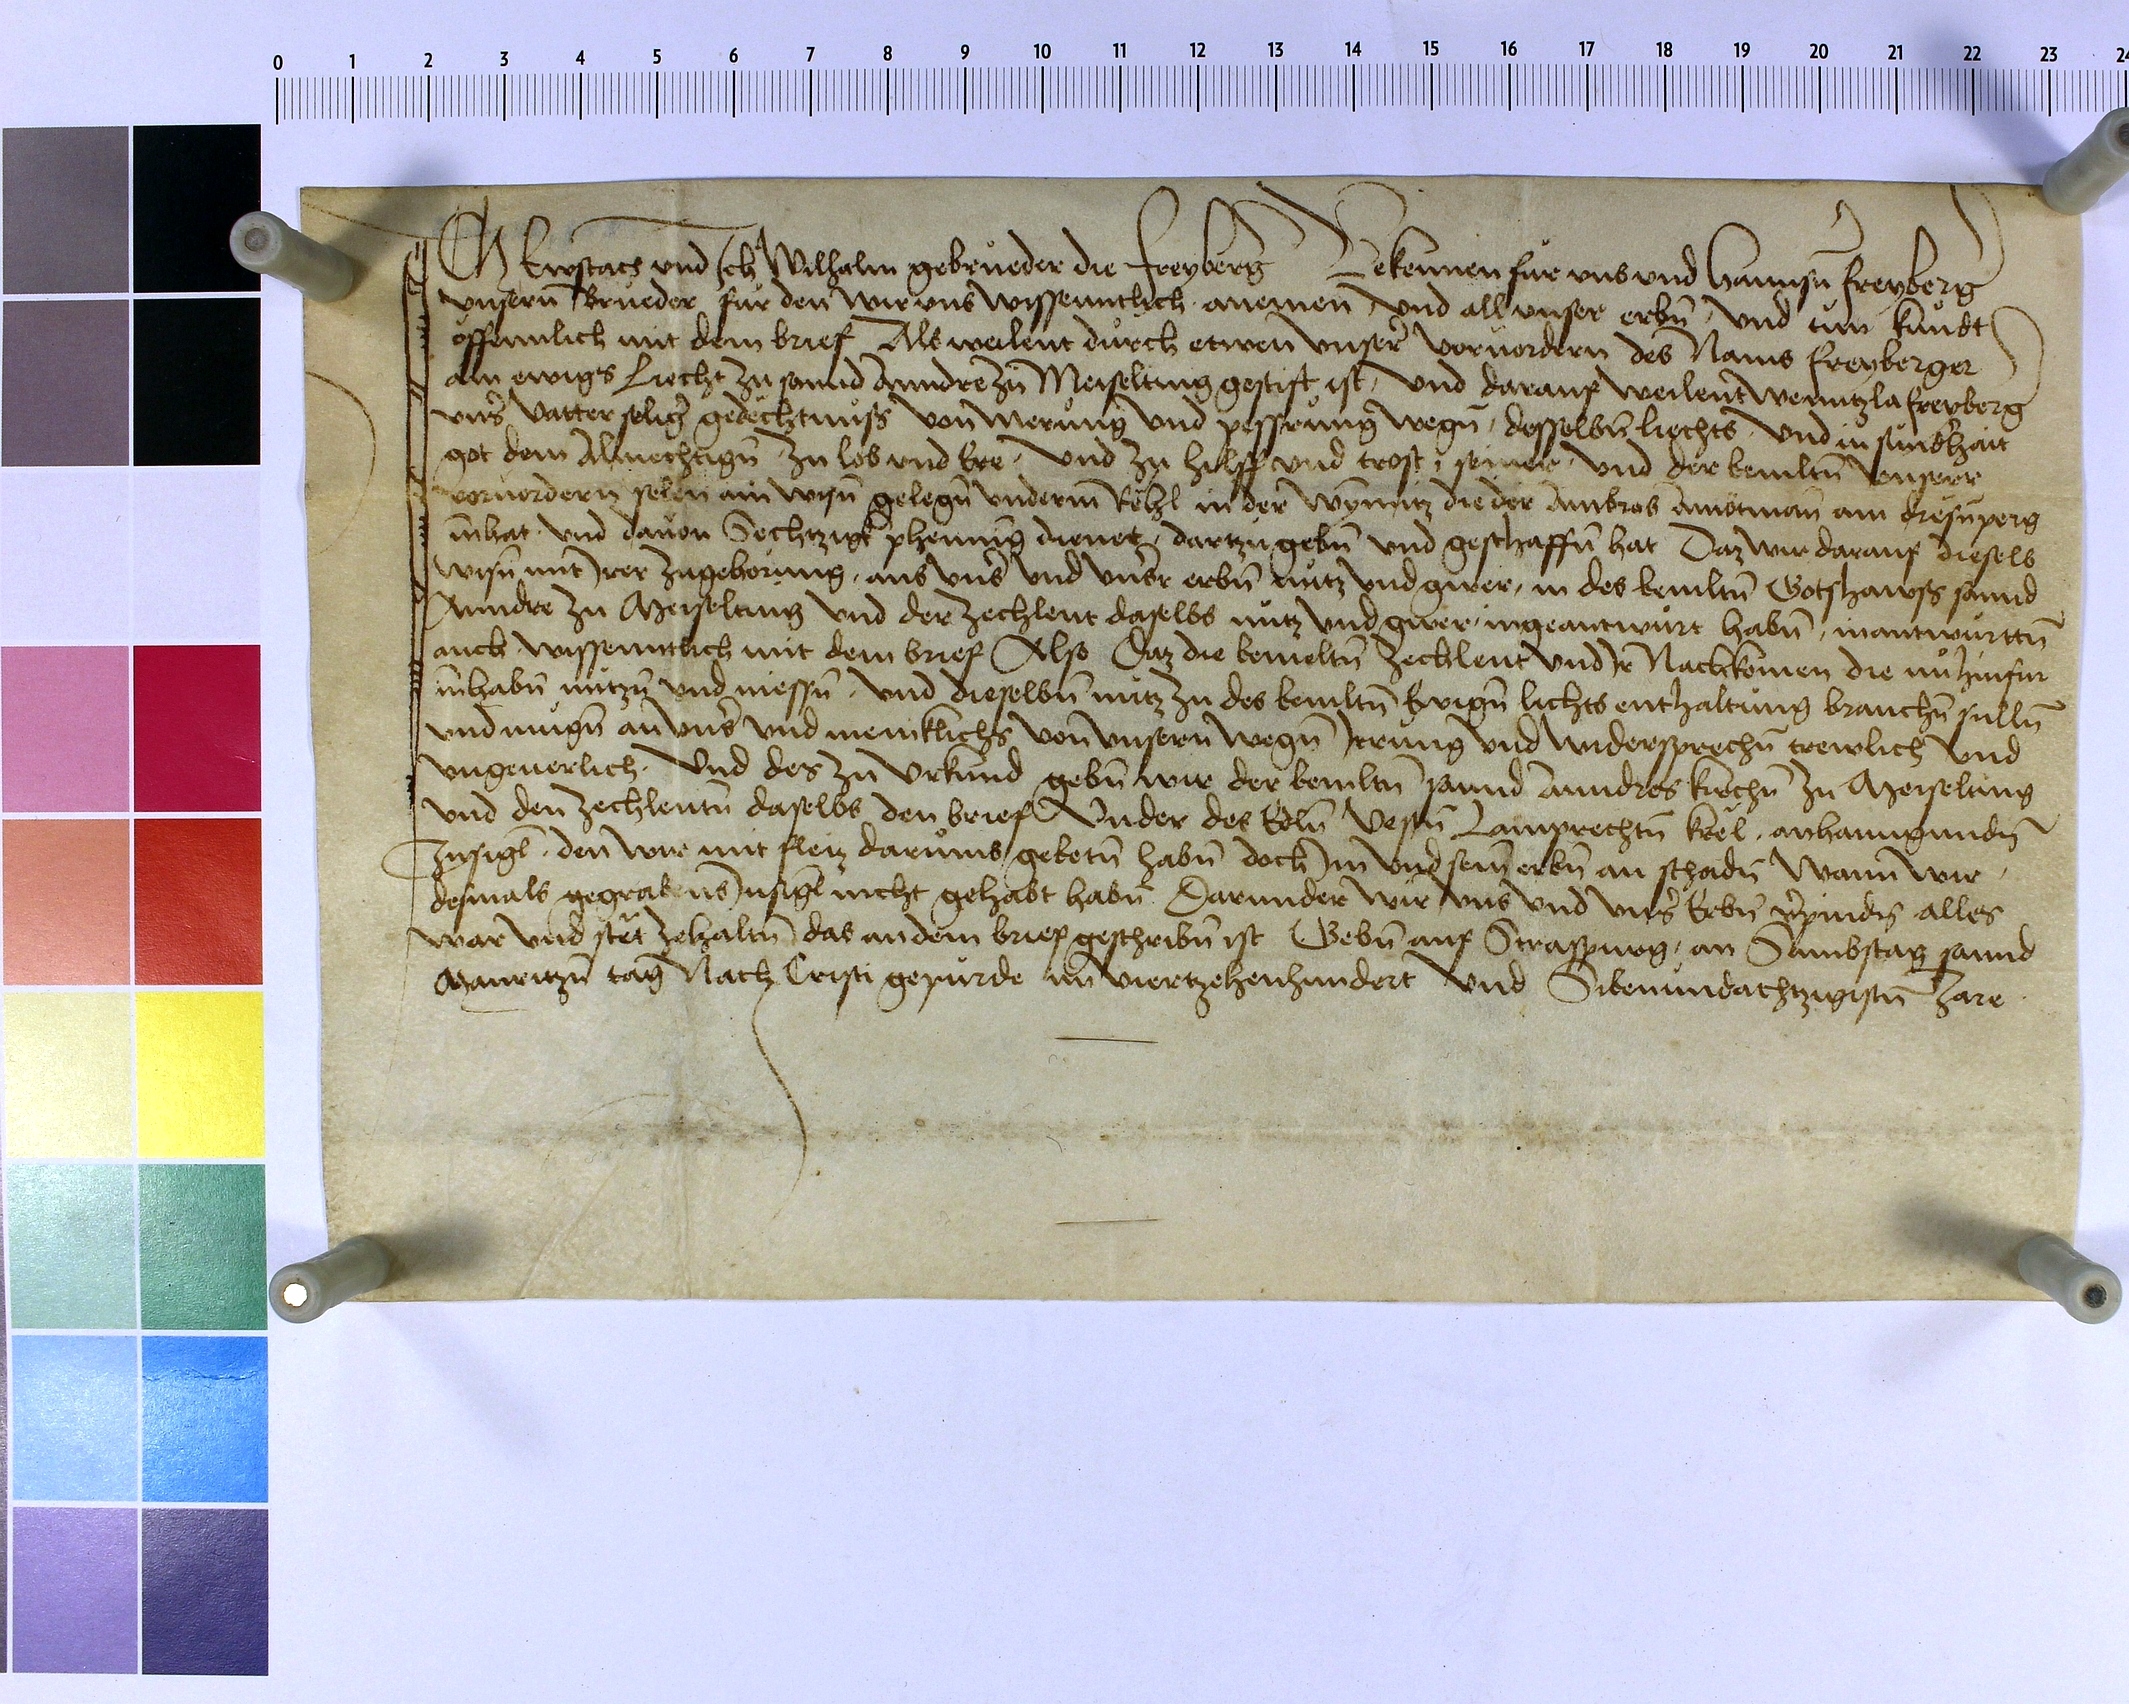 0 1 2 3 4 5 6 7 8 9 10 11 12 13 14 15 16 17 18 19 20 21 22 23 24
Ich Ewstach vnd Ich Wilhalm gebrueder die Freyberg Bekennen fur vns vnd Hannsn̄ Freyberg
vnsern̄ Brueder fur den wir vns wissenntlich annemen vnd all vnser erbn̄ vnd tun kundt
offennlich mit dem brief Als weilent durch etwen vnser voruordern des Nams Freyberger
ain ewigs Liecht zu sannd Anndre zu Meiselting gestift ist, vnd darauf weilent Wenntzla Freyberg
vns̄ vatter seliḡ gedechtnuss von merung vnd pessrung wegn̄ desselbn̄ liechts vnd in sunderhait
got dem Almechtign̄ zu lob vnd Ere vnd zu hilff vnd trost seiner vnd der bemeltn̄ vnserr
voruordern selen ain wisn̄ gelegn̄ vnderm in der die der Ambros Ambtman am
in̄hat vnd dauon Sechtzigk phenning dienet dartzu gebn̄ vnd geschaffn̄ hat Daz wir darauf dieselb
wisn̄ mit Irer Zugehorung aus vns̄ vnd vnsr erbn̄ nutz vnd gwer in des bemltn̄ Gotshawss sannd
Anndre zu Meiselting vnd der Zechlent daselbs nutz vnd gwer ingeantwurt habn̄ inantwurttn̄
auch wissenntlich mit dem brief Also Daz die bemeltn̄ Zechlent vnd Ir Nachkomen die nu hinfur
in̄habn̄ nutzn̄ vnd niessn̄ vnd dieselbn̄ nutz zu des bemltn̄ Ewign̄ lichts enthaltung brauchn̄ sulln̄
vnd mugn̄ an vns̄ vnd meniklichs von vnsern wegn̄ Irrung vnd widersprechn̄ trewlich vnd
vngeuerlich Vnd des zu Vrkund gebn̄ wir der bemltn̄ sannd Anndres kirchn̄ zu Meiselting
vnd den Zechlentn̄ daselbs den brief Vnder des Edln̄ Vestn̄ Lamprechtn̄ anhanngundn̄
Insigl den wir mit fleiz darumb gebetn̄ habn̄ doch Im vnd sein erbn̄ an schadn̄ Wann wir
desmals gegrabens Insigl nicht gehabt habn̄ Darunder wir vns vnd vns̄ Erbn̄ v̄pindn̄ alles
war vnd stet zehaltn̄ das an dem brief geschribn̄ ist Gebn̄ auf Straspurg an Sambstag sannd
Mauritzn̄ tag Nach Cristi gepurde im viertzehenhundert vnd Sibenundachtzigistn̄ Jare